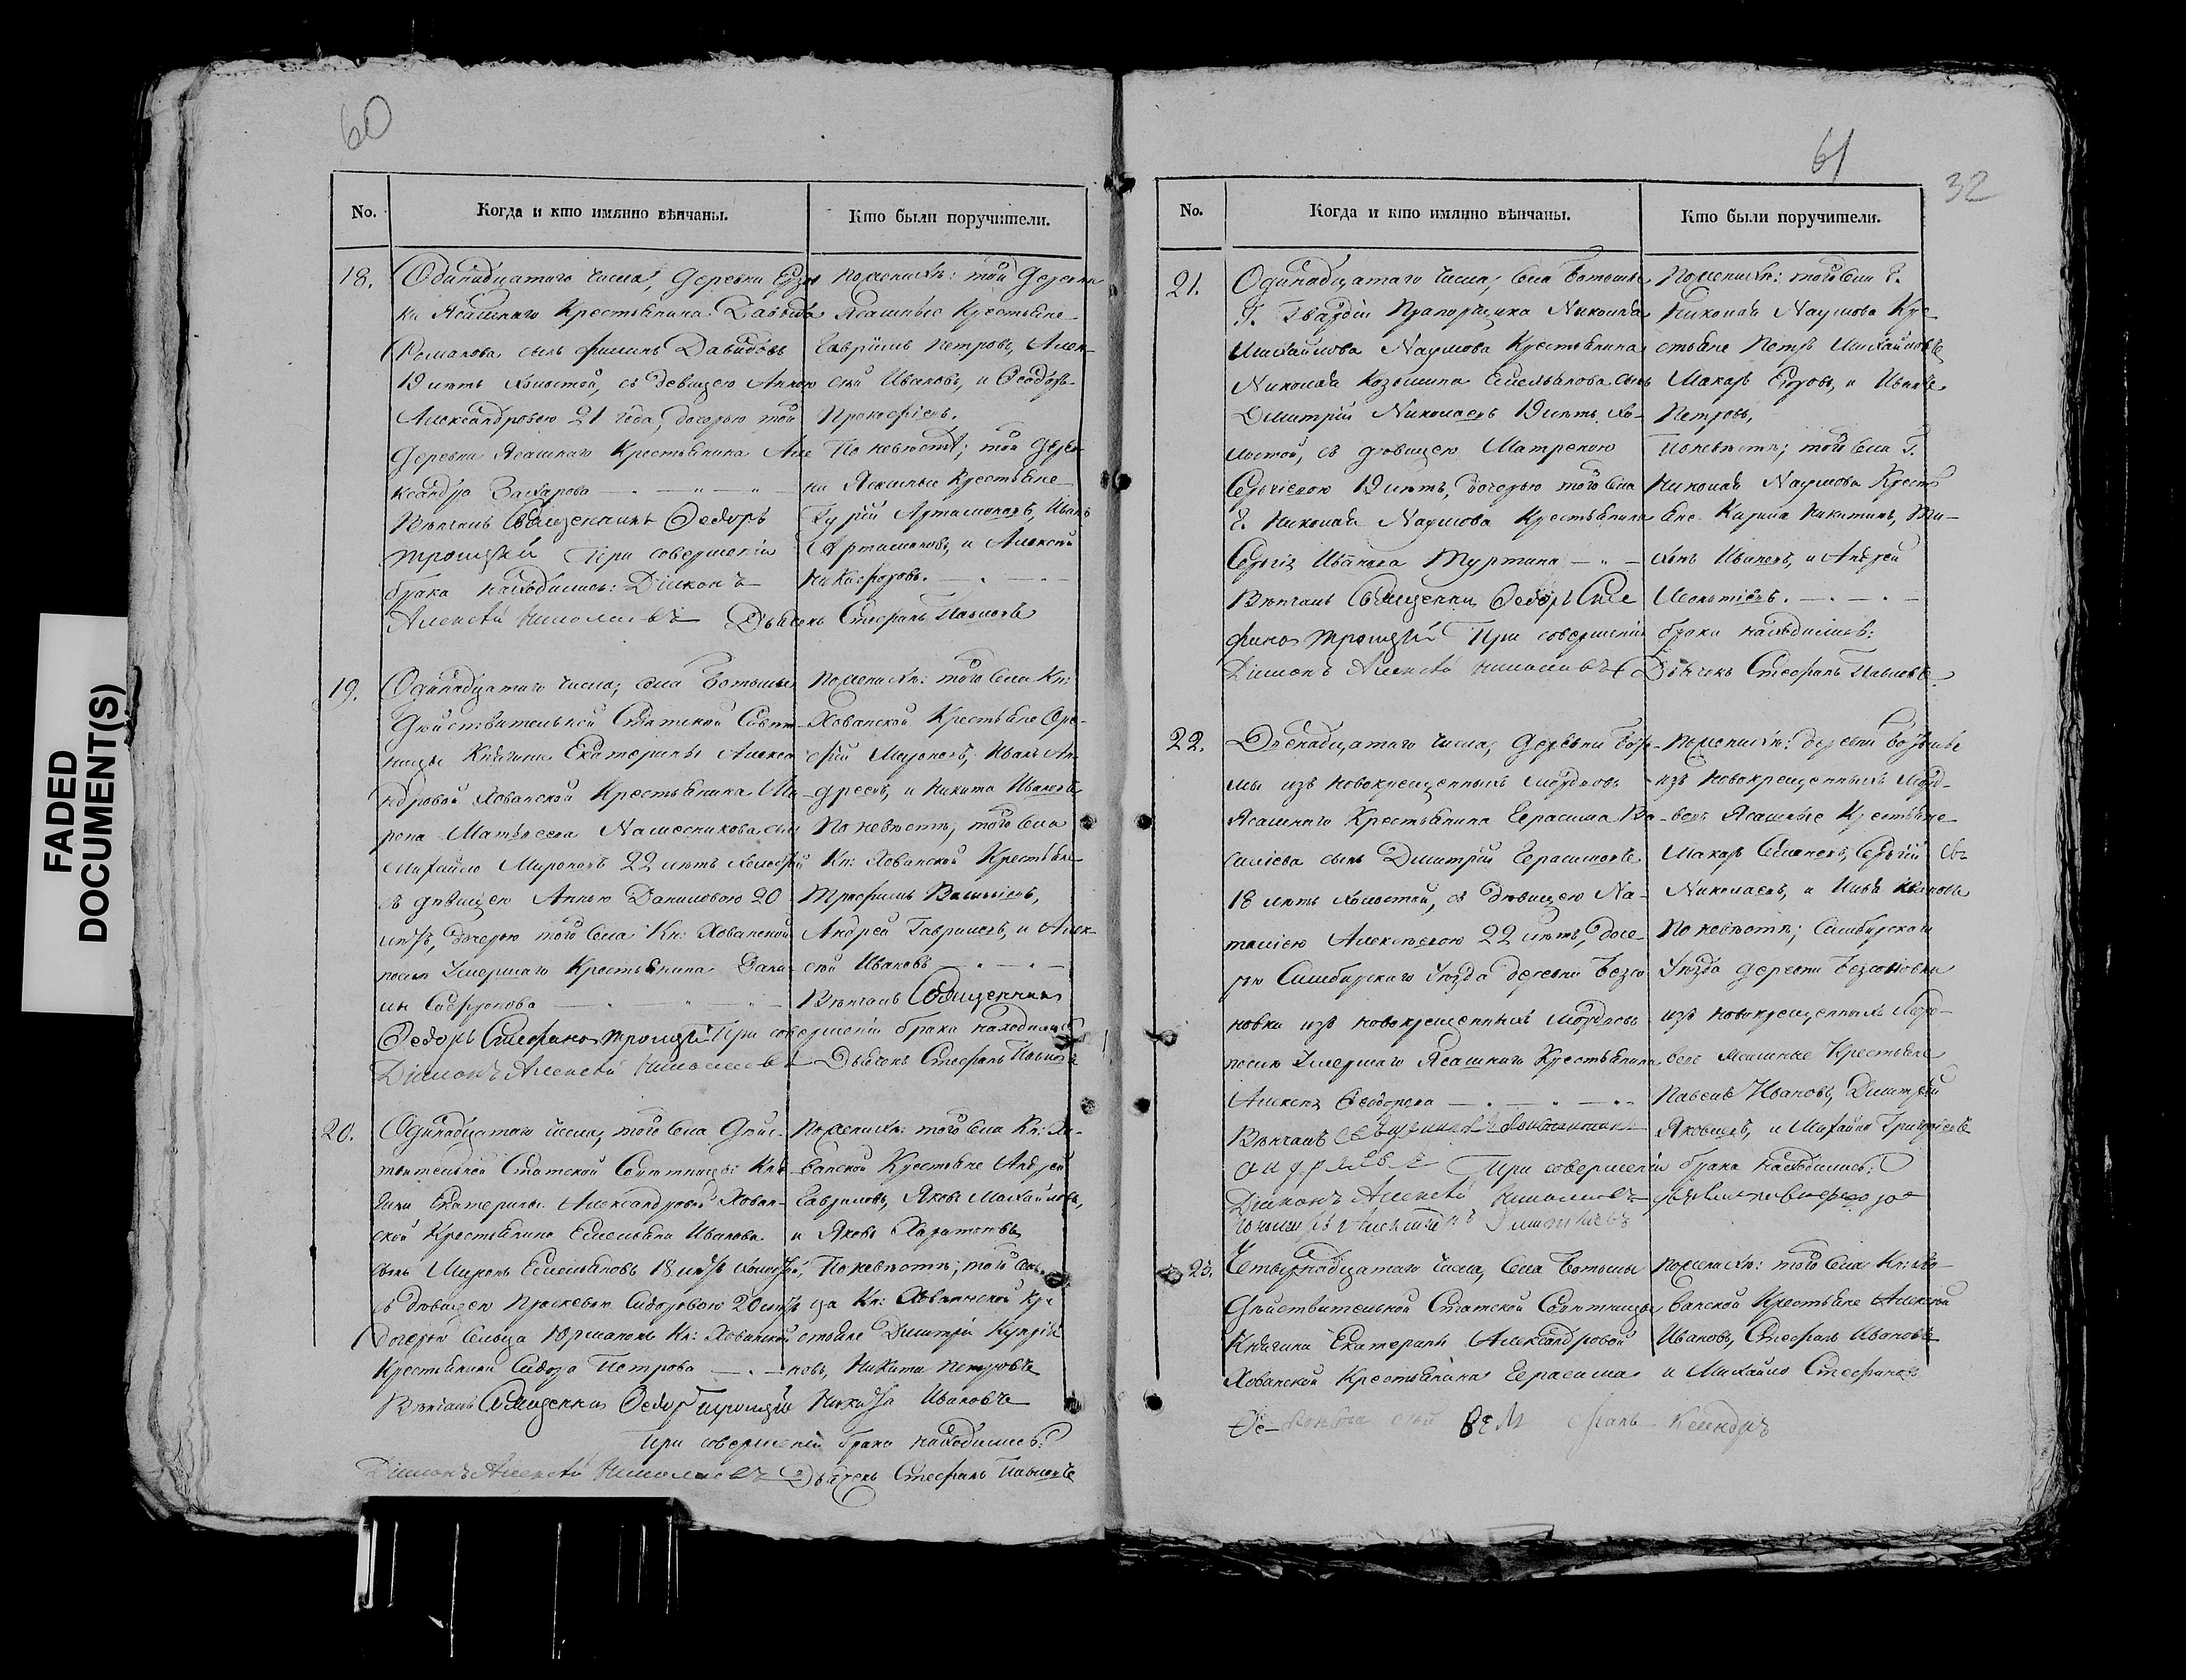 60
No.
Когда и кто имянно вѣнчаны.
Кто были поручители.
18.
Одинадцатаго числа, деревни
ки Ясашнаго Крестьянина Давыда
Романова сынъ Филипъ Давидовъ
19 лѣтъ холостой, съ девицею Анною
Александровою 21 года, дочерью той
деревни Ясашнаго Крестьянина Але
ксандра Захарова
Вѣнчалъ Священникъ Ѳедоръ
Троицкій При совершеніи
брака находились: Діаконъ
Алексѣй Николаевъ Дьячекъ Стефанъ Павловъ
По женихѣ: той деревни
Ясашные Крестьяне
Гаврилъ Петровъ, Алек-
сѣй Ивановъ, и Ѳеодоръ
Прокофіевъ.
По невѣстѣ; той дерев-
ни Ясашные Крестьяне
Гурій Артамоновъ, Иванъ
Артамоновъ, и Алексѣй
Никифоровъ.
19.
Одинадцатаго числа, села Ботьмы
Дѣйствительной Статской Совѣт-
ницы Княгини Екатерины Алекса
ндровой Хованской Крестьянина Ми-
рона Матвѣева сынъ
Михайло Мироновъ 22 лѣтъ холостой
съ дѣвицею Анною Даниловою 20
лѣтъ, дочерью того села Кн: Хованской
послѣ умершаго Крестьянина Дани-
лы Сафронова
Ѳедоръ Стефановъ Троицкій При совершеніи брака находились
Діаконъ Алексѣй Николаевъ Дьячекъ Стефанъ Павловъ
По женихѣ: того села Кн:
Хованской Крестьяне
Мироновъ, Иванъ Ан-
дреевъ, и Никита Ивановъ
По невѣстѣ, того села
Кн: Хованской Крестьяне
Трофимъ Васильевъ,
Андрей Гавриловъ, и Алек-
сѣй Ивановъ
Вѣнчалъ Священникъ
20.
Одинадцатаго числа, того села Дѣйс-
твительной Статской Совѣтницы Кня-
гини Екатерины Александровой Хован-
ской Крестьянина Емельяна Иванова
сынъ Миронъ Емельяновъ 18 лѣтъ холостой,
съ дѣвицею Сидоровою 20 лѣтъ
дочерью сельца Кн: Хованской
Крестьянина Сидора Петрова
Вѣнчалъ Священникъ Ѳедоръ Троицкій
При совершеніи брака находились:
Діаконъ Алексѣй Николаевъ Дьячекъ Стефанъ Павловъ
По женихѣ: того села Кн: Хо-
ванской Крестьяне Андрей
Гавриловъ, Яковъ Михайловъ,
и Яковъ
По невѣстѣ; того сель-
ца Кн: Хованской Кре
стьяне Дмитрій Купрія
новъ, Никита Петровъ
Никита Ивановъ
61
32
No.
Когда и кто имянно вѣнчаны.
Кто были поручители.
21.
Одинадцатаго числа, села Ботьмы
Г. Гвардіи Прапорщика Николая
Михайлова Наумова Крестьянина
Николая Козьмина Емельянова сынъ
Дмитрій Николаевъ 19 лѣтъ хо-
лостой, съ дѣвицею Матреною
Сергіевою 19 лѣтъ, дочерью того села
Г. Николая Наумова Крестьянина
Сергія Иванова Туртина
Вѣнчалъ Священникъ Ѳедоръ Сте
фановъ Троицкій При совершеніи брака находились:
Діаконъ Алексѣй Николаевъ Дьячекъ Стефанъ Павловъ
По женихѣ: того села Г.
Николая Наумова Кре-
стьяне Петръ Михайловъ
Макаръ Егоровъ, и Иванъ
Петровъ,
По невѣстѣ; того села Г.
Николая Наумова Кресть
яне Кирила Никитинъ, Ти-
хонъ Ивановъ, и Андрей
Леонтіевъ.
22.
Двенадцатаго числа, деревни
мы изъ новокрещенныхъ мордовъ
Ясашнаго Крестьянина Герасима Ва-
силіева сынъ Дмитрій Герасимовъ
18 лѣтъ холостой, съ дѣвицею На-
таліею Алексѣевою 22 лѣтъ, доче-
рью Симбирскаго Уѣзда деревни Безсо
новки изъ новокрещенныхъ мордовъ
послѣ умершаго Ясашнаго Крестьянина
Алексѣя Ѳеодорова
Вѣнчалъ
При совершеніи брака находились:
Діаконъ Алексѣй Николаевъ
По женихѣ: деревни
изъ новокрещенныхъ Морд-
вовъ Ясашные Крестьяне
Макаръ Семеновъ, Сергій
Николаевъ, и Илья Ивановъ
По невѣстѣ; Симбирскаго
Уѣзда деревни Безсоновки
изъ новокрещенныхъ Морд-
вовъ Ясашные Крестьяне
Павелъ Ивановъ, Дмитрій
Яковлевъ, и Михайло Григорьевъ
23.
Четырнадцатаго числа, села Ботьмы
Дѣйствительной Статской Совѣтницы
Княгини Екатерины Александровой
Хованской Крестьянина Герасима
По женихѣ: того села Кн: Хо-
ванской Крестьяне Алексѣй
Ивановъ, Стефанъ Ивановъ
и Михайло Стефановъ
FADED
DOCUMENT(S)